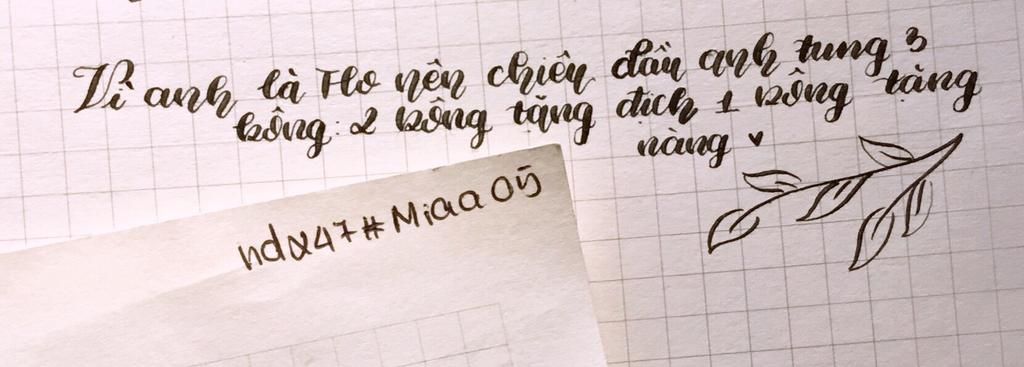 Vì anh là Flo nên chiêu đầu anh tung 3
bông: 2 bông tặng địch 1 bông tặng
nàng
ndx47#Miaa05